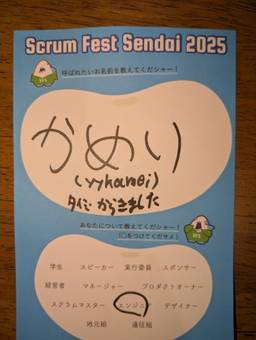 Scrum Fest Sendai 2025
呼ばれたいお名前を教えてくだシャー！
かめり
(yykamei)
タイからきました
あなたについて教えてくだシャー！
(○をつけてくだサメ)
学生 スピーカー 実行委員 スポンサー
経営者 マネージャー プロダクトオーナー
スクラムマスター エンジニア デザイナー
地元組 遠征組